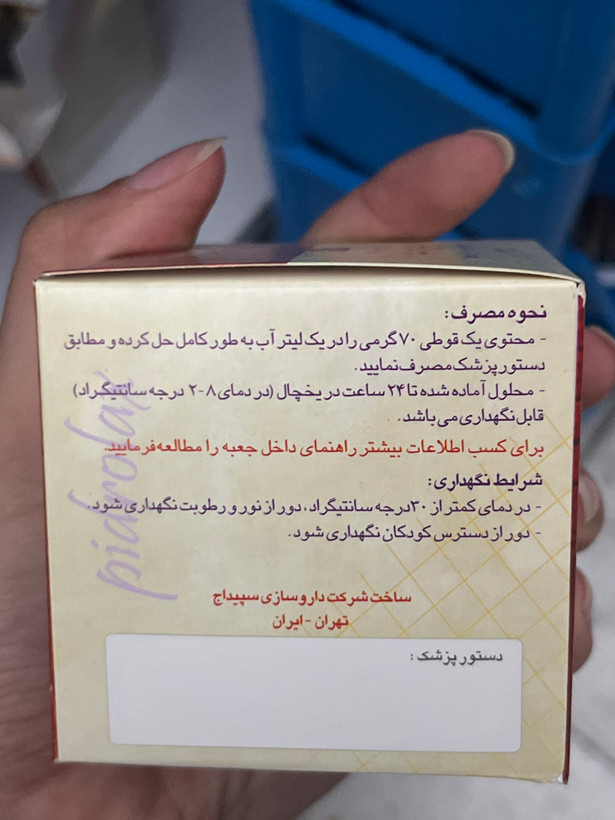 نحوه مصرف:
- محتوی یک قوطی ۷۰ گرمی را در یک لیتر آب به طور کامل حل کرده و مطابق
دستور پزشک مصرف نمایید.
- محلول آماده شده تا ۲۴ ساعت در یخچال (در دمای ۸-۲ درجه سانتیگراد)
قابل نگهداری می باشد.
برای کسب اطلاعات بیشتر راهنمای داخل جعبه را مطالعه فرمایید.
شرایط نگهداری:
- در دمای کمتر از ۳۰ درجه سانتیگراد، دور از نور و رطوبت نگهداری شود.
- دور از دسترس کودکان نگهداری شود.
pidrolax
ساخت شرکت داروسازی سپیداج
تهران - ایران
دستور پزشک: